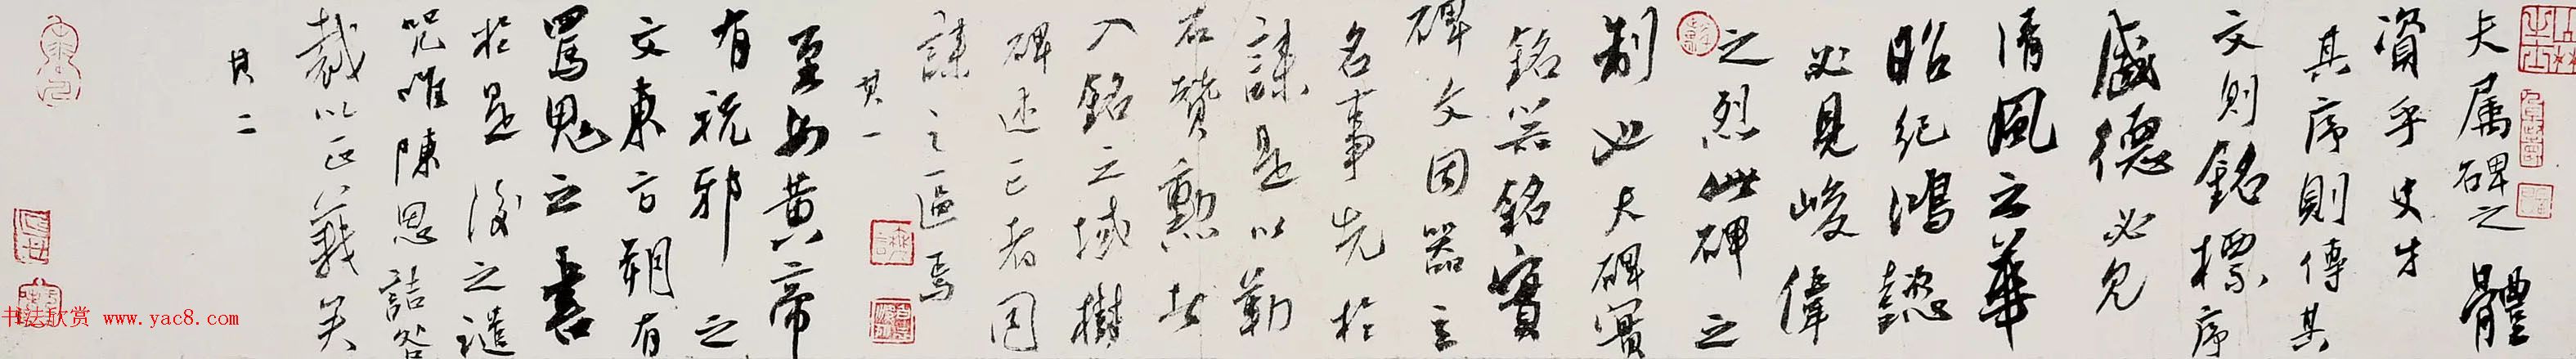 夫属碑之體
資乎史才
其序則傳其
文則銘標序
盛德必見
清風之華
昭紀鴻懿
必見峻偉
之烈此碑之
制也夫碑實
銘器銘實
碑文因器立
名事先於
誄是以勒
石贊勲者
入銘之域樹
碑述已者同
誄之區焉
其一
至如黄帝
有祝邪之
文東方朔有
罵鬼之書
於是後之譴
咒唯陳思詰咎
裁以正義矣
其二
书法欣赏 www.yac8.com